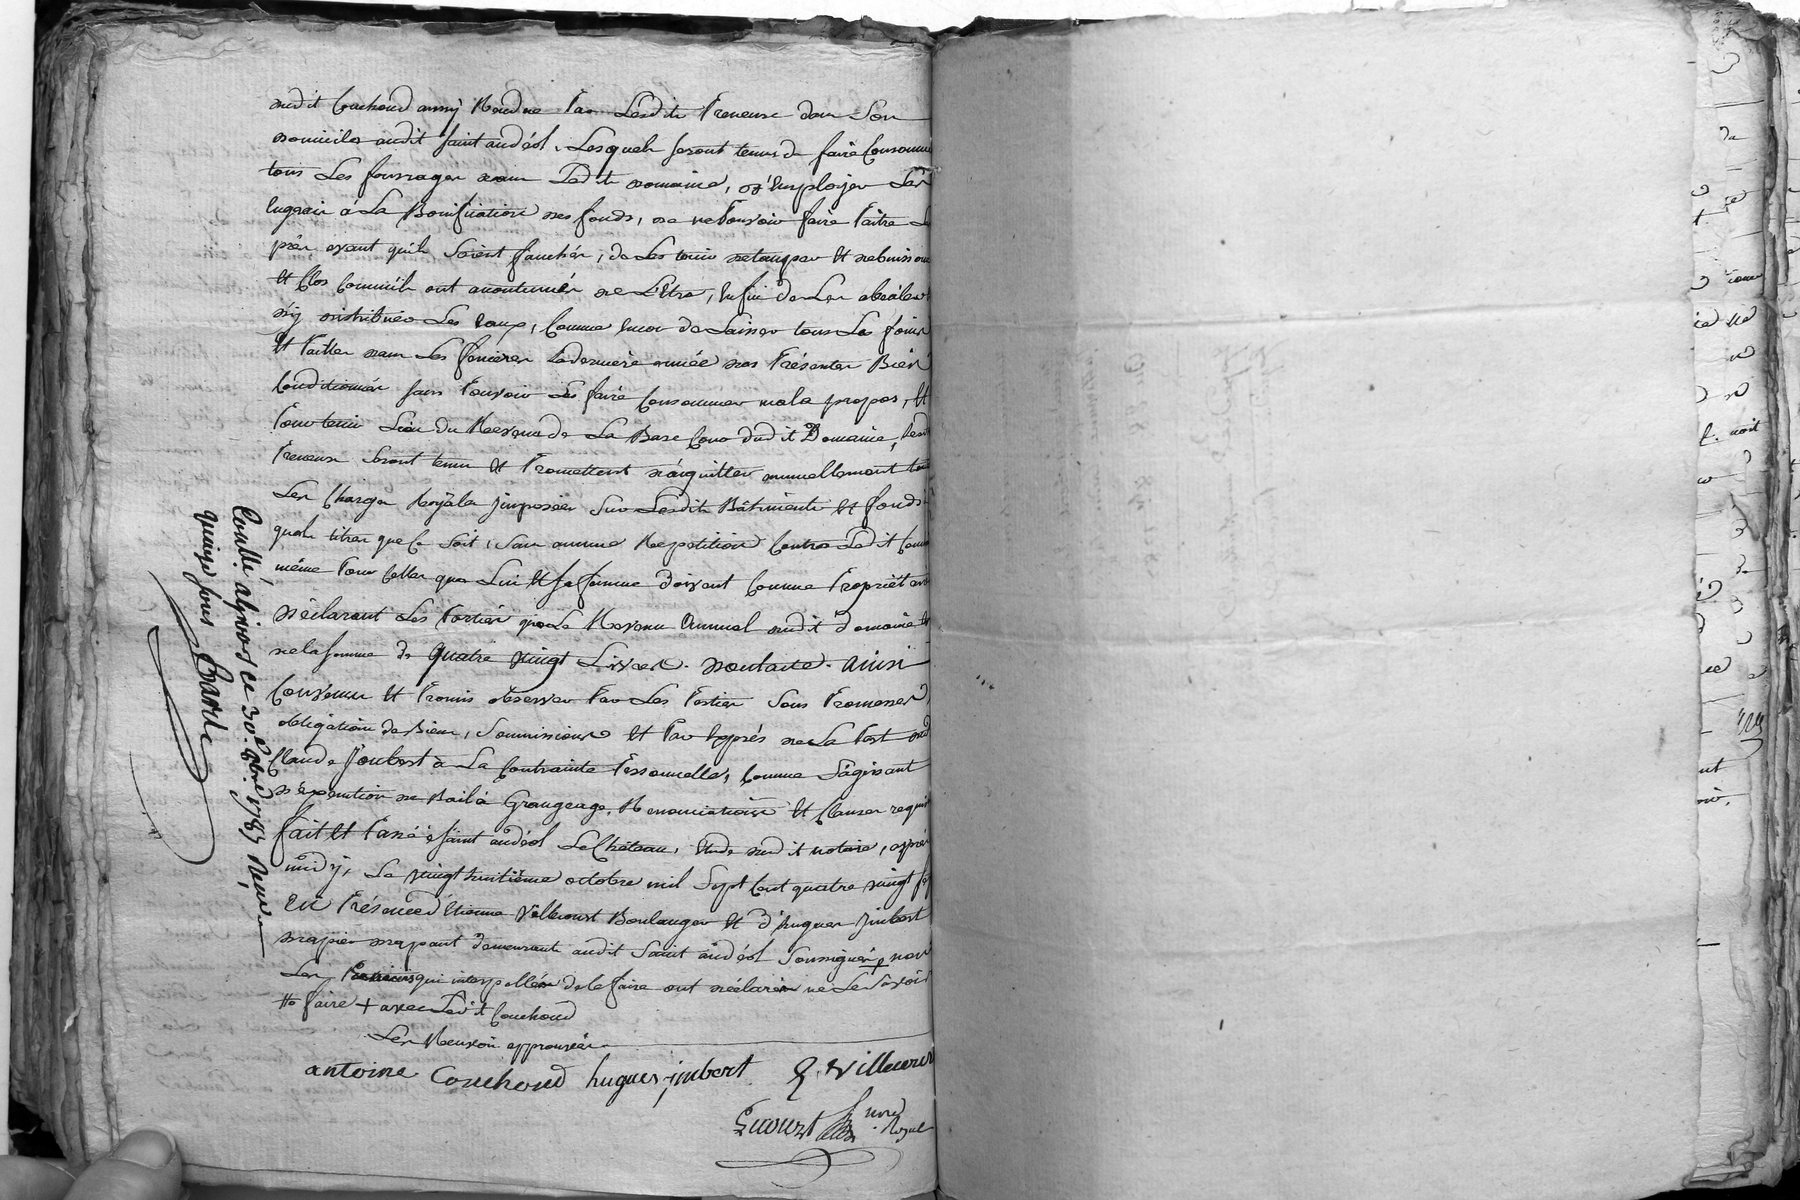 audit Couchoud aussy Rendue Par Lesdits Preneurs dans Son
domicile audit saint andéol. Lesquels seront tenus de faire Consommer
tous Les fourrages dans Ledit domaine, d'Employer Les
Engrais à La Bonification des fonds, de ne Pouvoir faire Paitre Les
prés avant qu'ils Soient fauchés, de Les tenir détaupés Et debuissonnés
Et Clos Comme ils ont accoutumés de L'Etre, Enfin de Les
d'y distribuer Les Eaux, Comme Encor de Laisser tous Les foins
Et Pailles dans Les fenieres Laderniere année des Présentes Bien
Conditionnés sans Pouvoir Les faire Consommer mal a propos, Et
Pour tenir Lieu du Revenu de La Basse Cour dudit Domaine, Lesdits
Preneurs Seront tenus Et Promettent d'acquitter annuellement toutes
Les Charges Royales jmposées Sur Lesdits Bâtiments Et fonds à
quels titres que Ce Soit, Sans aucune Répétition Contre Ledit Couchoud
même Pour Celles que Lui Et Sa femme doivent Comme Propriétaires
Déclarant Les Parties que Le Revenu Annuel dudit domaine Est
de la somme de quatre vingt Livres. dont acte. ainsi
Convenu Et Promis observer Par Les Parties Sous Promesses,
obligations de Biens, Soumissions Et Par Exprés de La Part dud
Claude Joubert à La Contrainte Personnelle, Comme S'agissant
d'éxécution de Bail à Grangeage, Renonciations Et Clauses requises
fait Et Passé à Saint andéol Le Château, Etude dudit notaire, après
midy, Le vingt huitième octobre mil Sept Cent quatre vingt sept
En Présence d'Etienne Villecourt Boulanger Et d'hugues jmbert
drapier drapant demeurants audit Saint andéol Soussignés, non
Les Preneurs qui interpellés de le faire ont déclarés ne Le Savoir
faire + avec Ledit Couchoud
Les Renvois approuvés
antoine Couchoud hugues jmbert E. Villecourt
not.re Royal
Con.llé à givors ce 30.e 8bre 1787 Reçu
quinze sous Barde